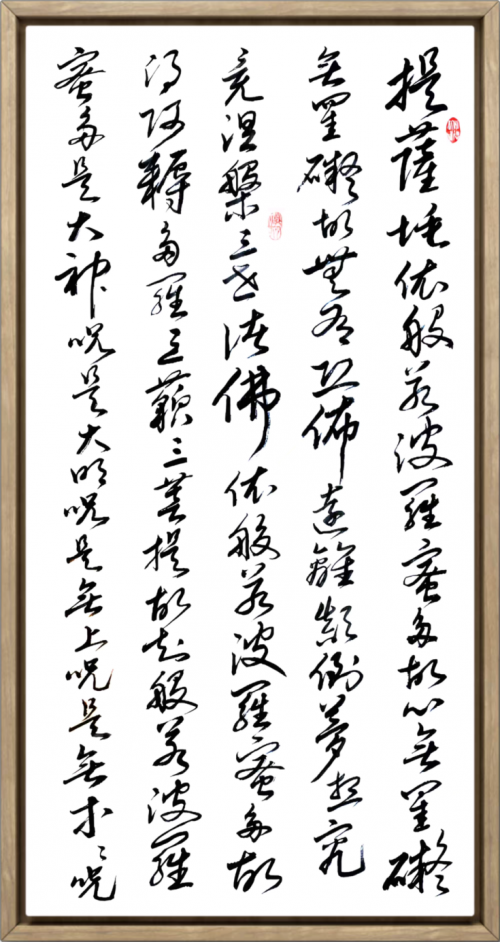 提薩埵依般若波羅蜜多故心無罣礙
無罣礙故無有恐怖遠離顛倒夢想究
竟涅槃三世諸佛依般若波羅蜜多故
得阿耨多羅三藐三菩提故知般若波羅
蜜多是大神呪是大明呪是無上呪是無等々呪